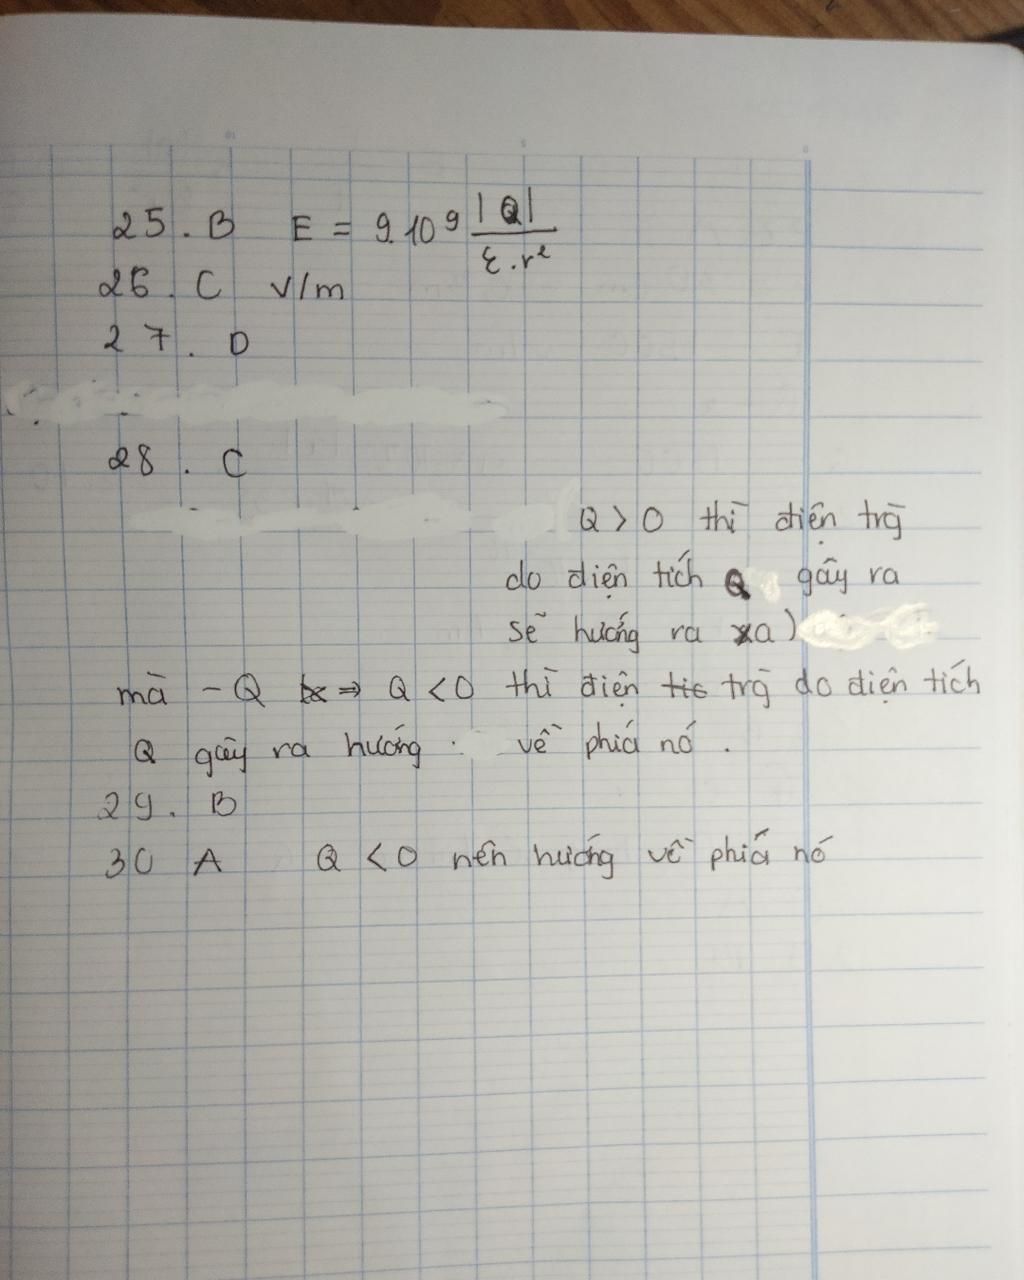 25. B E = 9.10^9 |Q| / ε.r²
26. C V/m
27. D
28. C
Q > 0 thì điện trg̀
do điện tích Q gây ra
sẽ hướng ra xa)
mà - Q ⇒ Q < 0 thì điện trg̀ do điện tích
Q gây ra hướng về phiá nó.
29. B
30 A Q < 0 nên hướng về phiá nó